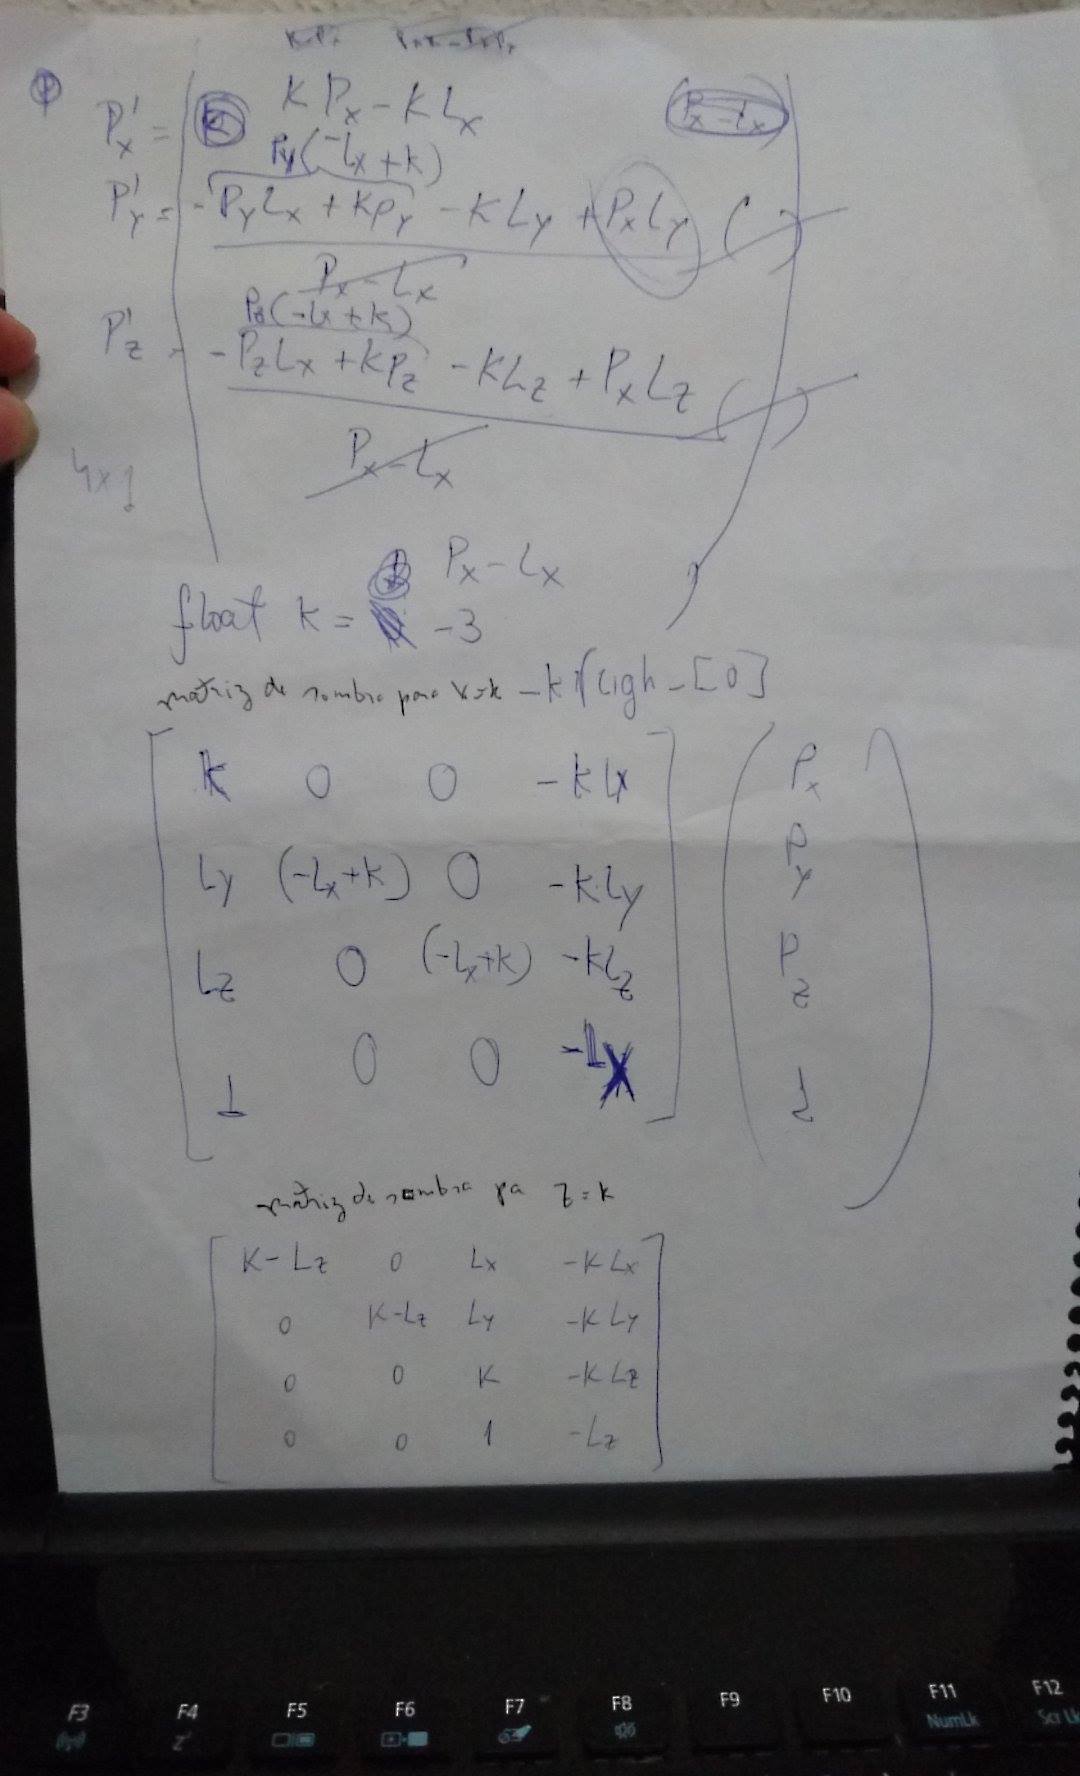 K Px - K Lx
P'x =
Py(-Lx + k)
P'y = -PyLx + kPy - KLy + PxLy ( )
Px - Lx
Pz(-Lx + k)
P'z - -PzLx + kPz - KLz + PxLz ( )
Px - Lx
4x1
Px - Lx
float k = -3
matriz de sombra para x=k -k*(ligh_[0]
K 0 0 -K Lx Px
Ly (-Lx+k) 0 -K Ly Py
Lz 0 (-Lx+k) -kLz Pz
1 0 0 -Lx 1
matriz de sombra pa z=k
K-Lz 0 Lx -K Lx
0 K-Lz Ly -K Ly
0 0 K -K Lz
0 0 1 -Lz
F3 F4 F5 F6 F7 F8 F9 F10 F11 F12
NumLk Scr Lk